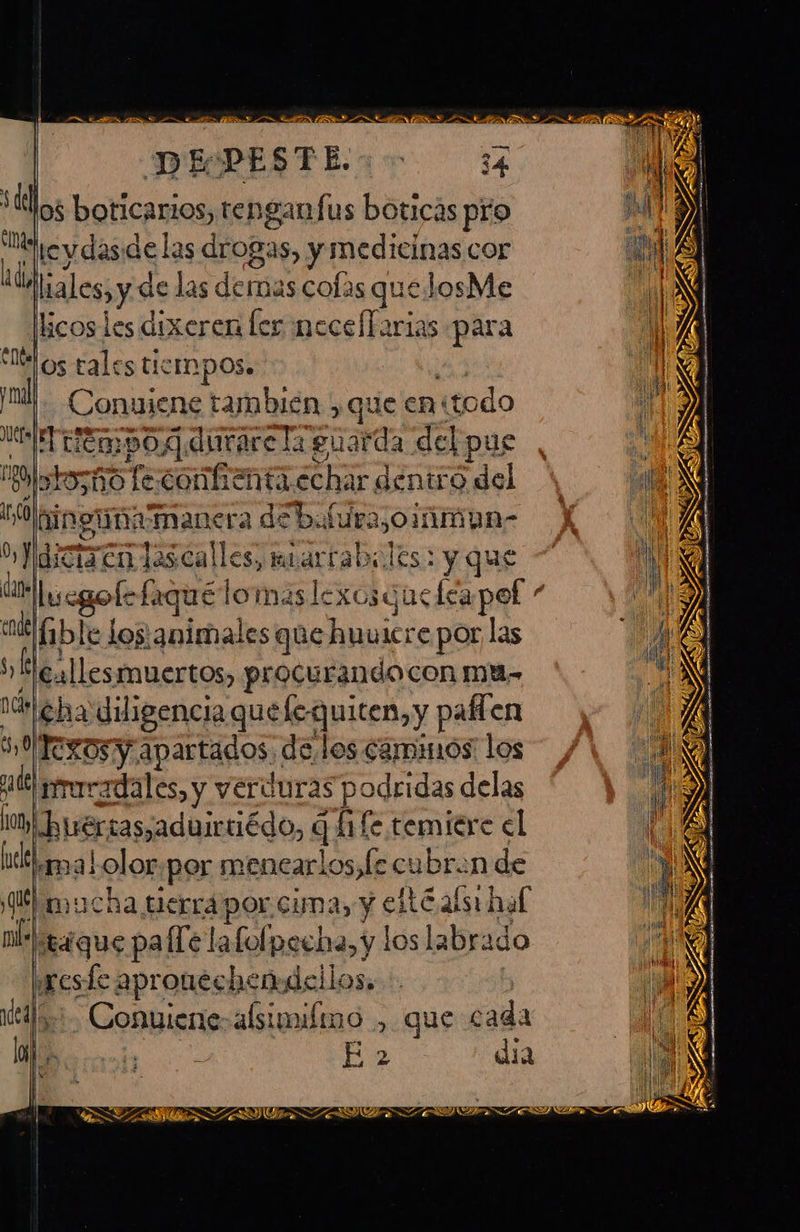 DE PESTE. 34
los boticarios, tengan sus boticas pro
ueydas de las drogas, y medicinas cor
diales, y de las demas cosas que los Me
dicos les dixeren ser necessarias para
los tales tiempos.
Conuiene tambien, que en todo
el tiẽpo q̃ durare la guarda del pue
blo, no se consienta echar dentro del
ninguna manera de basura, o inmun-
dicia en las calles, ni arrabales: y que
luego se saque lo mas lexos que sea pos
sible los animales que huuiere por las
calles muertos, procurando con mu-
cha diligencia que se quiten, y passen
lexos y apartados de los caminos los
muradales, y verduras podridas de las
huertas, aduirtiẽdo, q̃ si se temiere el
mal olor por menearlos, se cubran de
mucha tierra por cima, y estẽ assi has
ta que passe la sospecha, y los labrado
res se aprouechen dellos.
Conuiene assimismo, que cada
E 2 dia